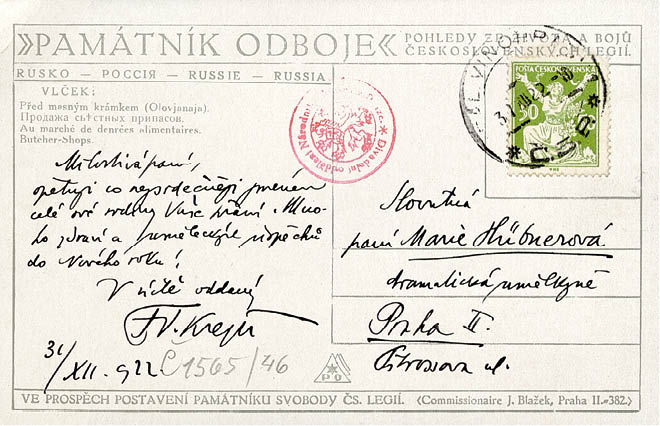 »PAMÁTNÍK ODBOJE«
POHLEDY ZE ŽIVOTA A BOJŮ
ČESKOSLOVENSKÝCH LEGIÍ.
RUSKO — РОССІЯ — RUSSIE — RUSSIA
VLČEK:
Před masným krámkem (Olovjanaja).
Продажа съѣстныхъ припасов.
Au marché de denrées alimentaires.
Butcher-Shops.
POŠTA ČESKOSLOVENSKÁ
50
Milostivá paní,
opětuji co nejsrdečněji jménem
celé své rodiny Vaše přání. Mno-
ho zdraví a uměleckých úspěchů
do Nového roku!
V úctě oddaný
F. V. Krejčí
31/XII. 922
C 1565/46
Slovutná
paní Marie Hübnerová
dramatická umělkyně
Praha II.
Pštrossova ul.
PO
VE PROSPĚCH POSTAVENÍ PAMÁTNÍKU SVOBODY ČS. LEGIÍ.
(Commissionaire J. Blažek, Praha II.-382.)